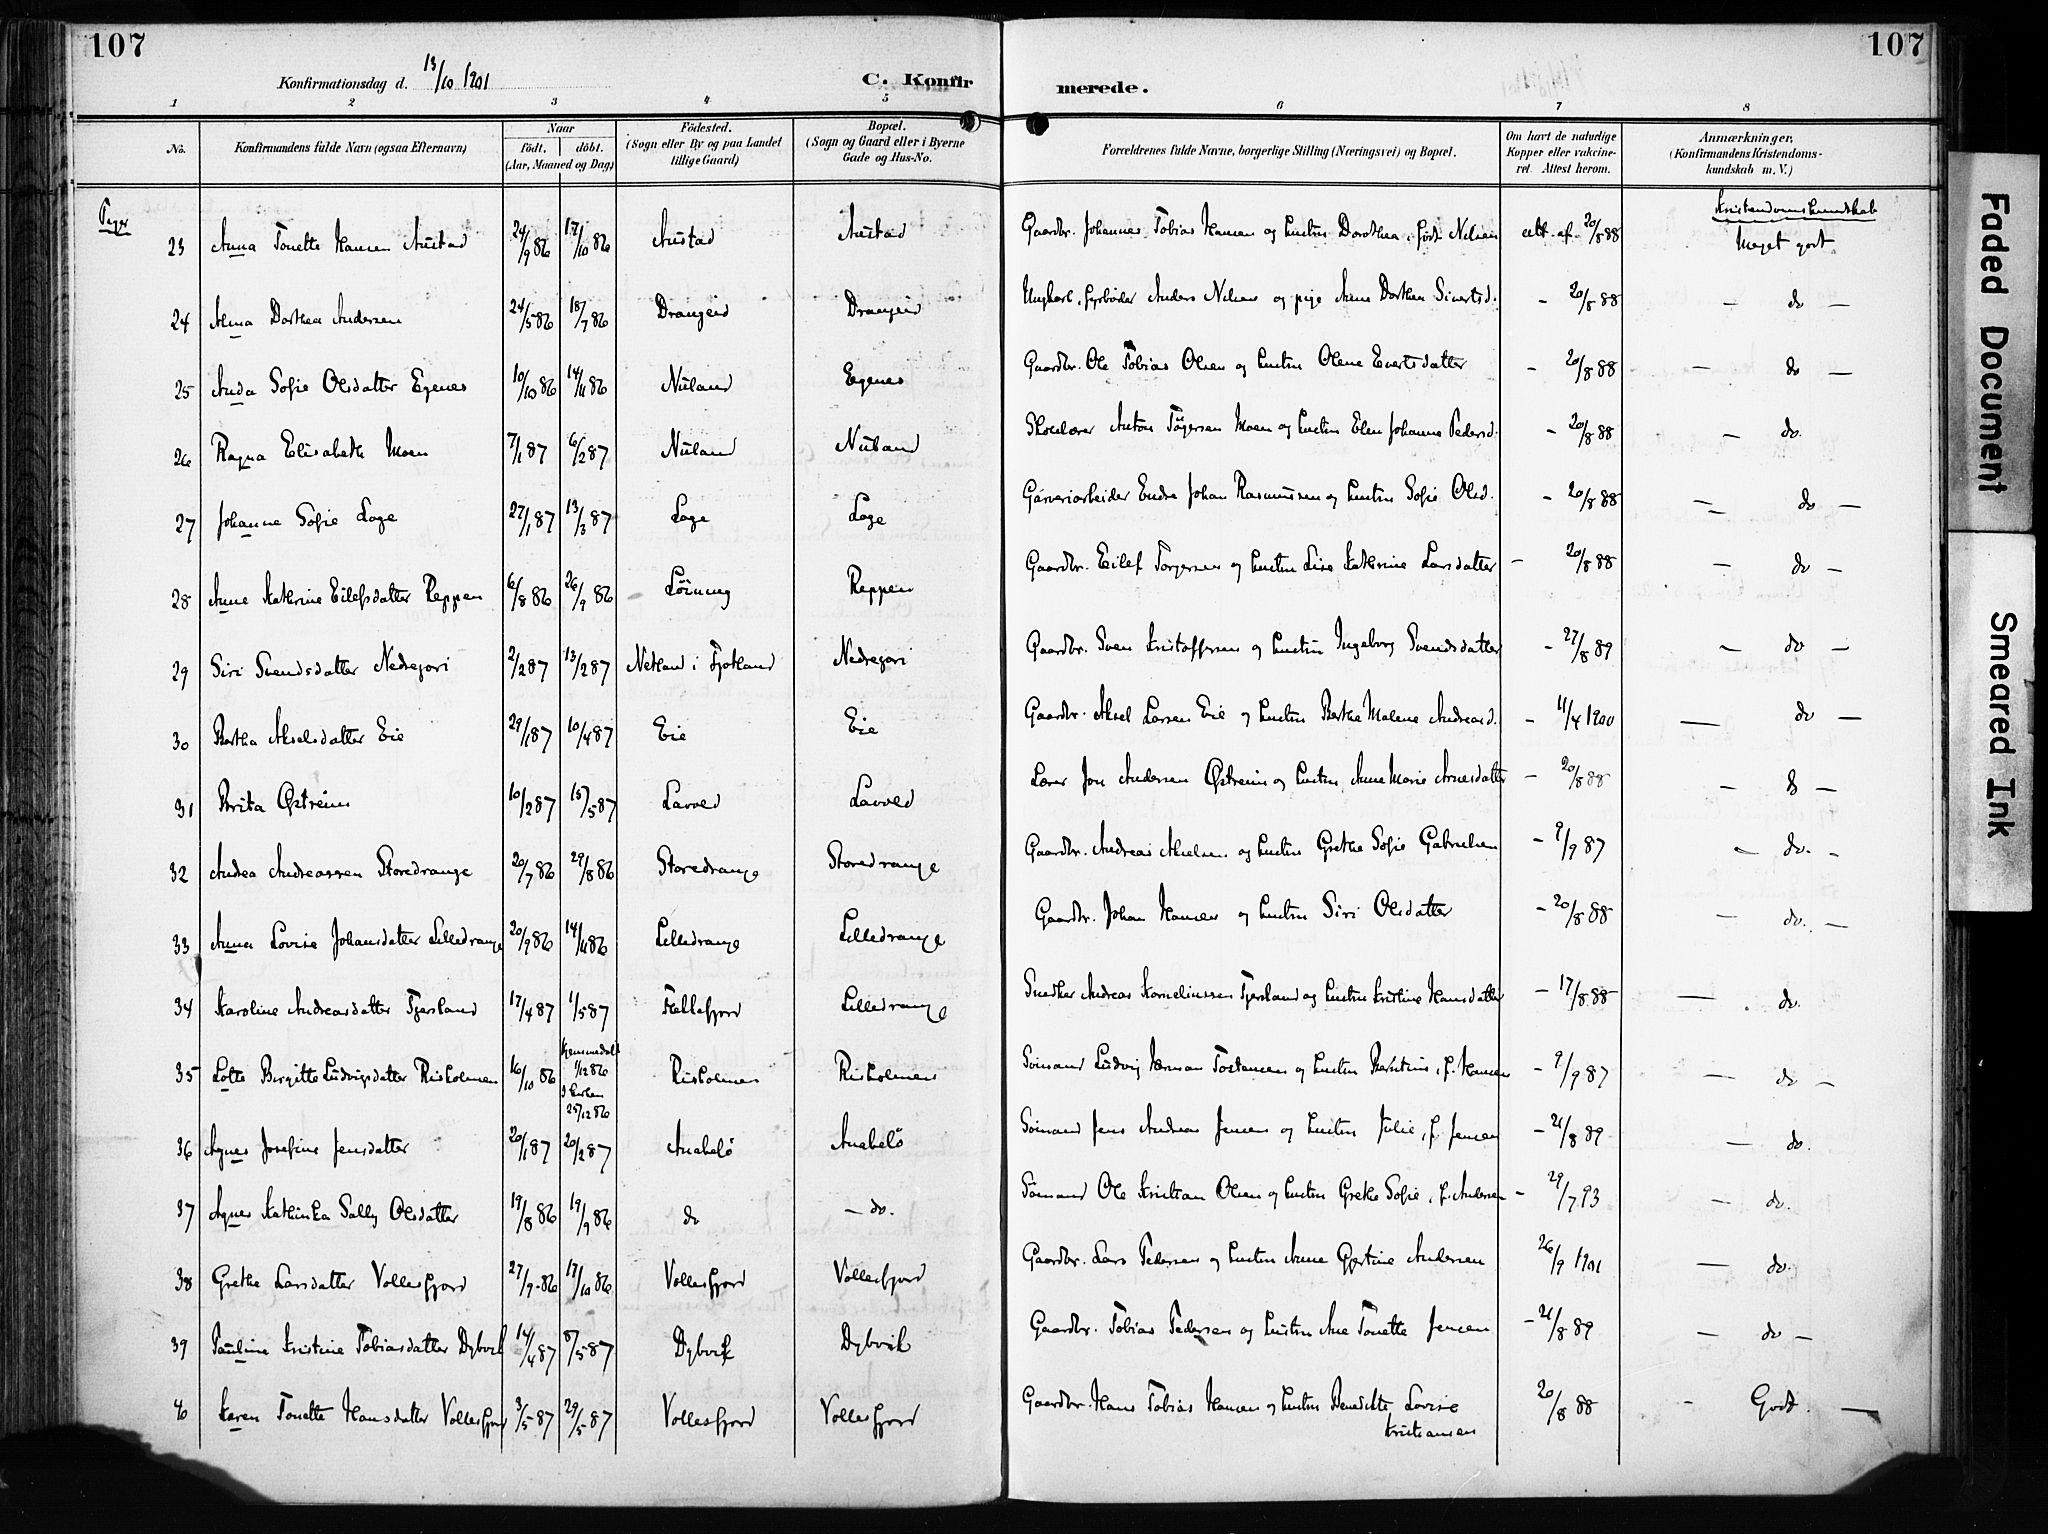 107
107
Konfirmationsdag d. 13/10 1901
C. Konfirmerede.
1 2 3 4 5 6 7 8
No. | Konfirmandens fulde Navn (ogsaa Efternavn) | Naar födt. döbt. (Aar, Maaned og Dag) | Födested. (Sogn eller By og paa Landet tillige Gaard) | Bopæl. (Sogn og Gaard eller i Byerne Gade og Hus-No. | Forældrenes fulde Navne, borgerlige Stilling (Næringsvei) og Bopæl. | Om havt de naturlige Kopper eller vakcineret. Attest herom. | Anmærkninger, (Konfirmandens Kristendomskundskab m. V.)
Piger
Kristendomskundskab
23 Anna Tonette Hansen Austad 24/9 86 17/10 86 Austad Austad Gaardbr. Johannes Tobias Hansen og hustru Dorothea, født Nilsen att. af 20/8 88 Meget godt
24 Alma Dorthea Andersen 24/5 86 18/7 86 Drangeid Drangeid Ungkarl, fyrbøder Anders Nilsen og pige Anne Dorthea Sivertsd. - 20/8 88 - do -
25 Anda Sofie Olsdatter Egenes 10/10 86 14/11 86 Nuland Egenes Gaardbr. Ole Tobias Olsen og hustru Olene Evertsdatter - 20/8 88 - do -
26 Ragna Elisabeth Moen 7/1 87 6/2 87 Nuland Nuland Anton Moen og hustru Elen Johanne Pedersd. - 20/8 88 - do.
27 Johanne Sofie Loge 27/1 87 13/3 87 Loge Loge Garveriarbeider Endre Johan Rasmussen og hustru Sofie Olsd. - 20/8 88 - do -
28 Anne Kathrine Eilefsdatter Reppen 6/8 86 26/9 86 Löining Reppen Gaardbr. Eilef Torgersen og hustru Lise Kathrine Larsdatter - 20/8 88 - do -
29 Siri Svendsdatter Nedregori 2/2 87 13/2 87 Netland i Fjotland Nedregori Gaardbr. Sven Kristoffersen og hustru Ingeborg Svendsdatter - 27/8 89 - do -
30 Bertha Akselsdatter Eie 29/1 87 10/4 87 Eie Eie Gaardbr. Aksel Larsen Eie og hustru Berthe Malene Andreasd. - 11/4 1900 - do -
31 Brita Østreim 10/2 87 15/5 87 Lavold Lavold Lærer Jon Andersen Østreim og hustru Anne Marie Arnesdatter - 20/8 88 - do -
32 Andrea Andreassen Storedrange 20/7 86 29/8 86 Storedrange Storedrange Gaardbr. Andreas Akselsen og hustru Grethe Sofie Gabrielsen - 9/9 87 - do. -
33 Anna Lovise Johansdatter Lilledrange 20/9 86 14/11 86 Lilledrange Lilledrange Gaardbr. Johan Hansen og hustru Siri Olsdatter - 20/8 88 - do. -
34 Karoline Andreasdatter Fjersland 17/4 87 1/5 87 Fellefjord Lilledrange Snedker Andreas Korneliussen Fjersland og hustru Kristine Hansdatter - 17/8 88 - do.
35 Lotte Birgitte Ludvigsdatter Risholmen 16/10 86 Hjemmedøbt 1/12 86 I kirken 25/12 86 Risholmen Risholmen Sömand Ludvig Herman Tostensen og hustru Berntine, f. Hansen - 9/9 87 - do -
36 Agnes Josefine Jensdatter 20/1 87 20/2 87 Anabelö Anabelö Sömand Jens Andreas Jensen og hustru Julie, f. Jensen - 21/8 89 - do.
37 Agnes Kathinka Sally Olsdatter 19/8 86 19/9 86 do - do. Sömand Ole Kristian Olsen og hustru Grethe Sofie, f. Andersen - 29/7 93 - do.
38 Grethe Larsdatter Vollesfjord 27/9 86 17/10 86 Vollesfjord Vollesfjord Gaardbr. Lars Pedersen og hustru Anne Gjertine Andersen 26/9 1901 - do.
39 Pauline Kristine Tobiasdatter Dybvik 14/4 87 8/5 87 Dybvik Dybvik Gaardbr. Tobias Pedersen og hustru Ane Tonette Jensen - 21/8 89 - do -
40 Karen Tonette Hansdatter Vollesfjord 3/5 87 29/5 87 Vollesfjord Vollesfjord Gaardbr. Hans Tobias Hansen og hustru Benedikte Lovise Kristiansen 20/8 88 - Godt. -
Faded Document
Smeared Ink